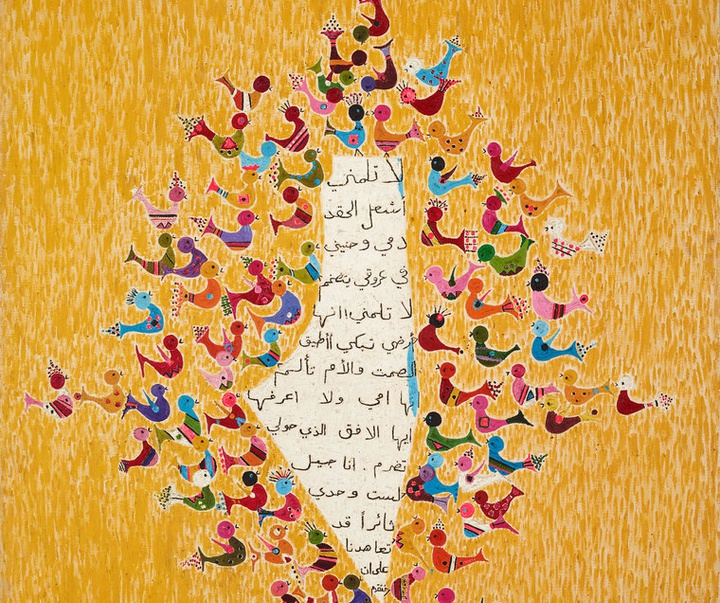 لا تلمني
أشعل الحقد
دمي وحنيني
في عروقي
لا تلمني!! انها
أرضي تبكي أأطيق
الصمت والأم
إنها امي ولا اعرفها
ايها الافق الذي حولي
تضرم . انا جيل
لست وحدي
ثائراً قد
تعاهدنا
على ان